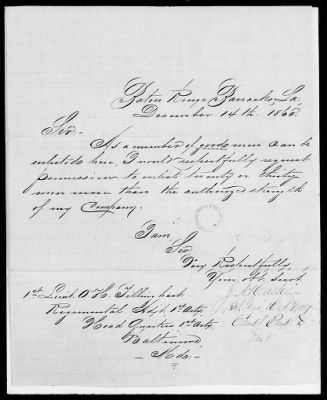 Baton Rouge Barracks, La,
December 14th 1866.
Sir:-
As a number of good men can be
enlisted here, I would respectfully request
permission to enlist twenty or thirty
men more than the authorized strength
of my Company.
I am
Sir
Very Respectfully
Your Obt. Servt
1st Lieut. O H. Tillinghast
Regimental Adjt. 1st Arty.
Head Quarters 1st Arty.
Baltimore
Md.